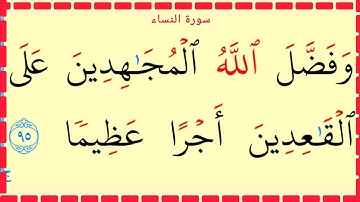 سورة النساء
وَفَضَّلَ ٱللَّهُ ٱلْمُجَٰهِدِينَ عَلَى
ٱلْقَٰعِدِينَ أَجْرًا عَظِيمًا ٩٥